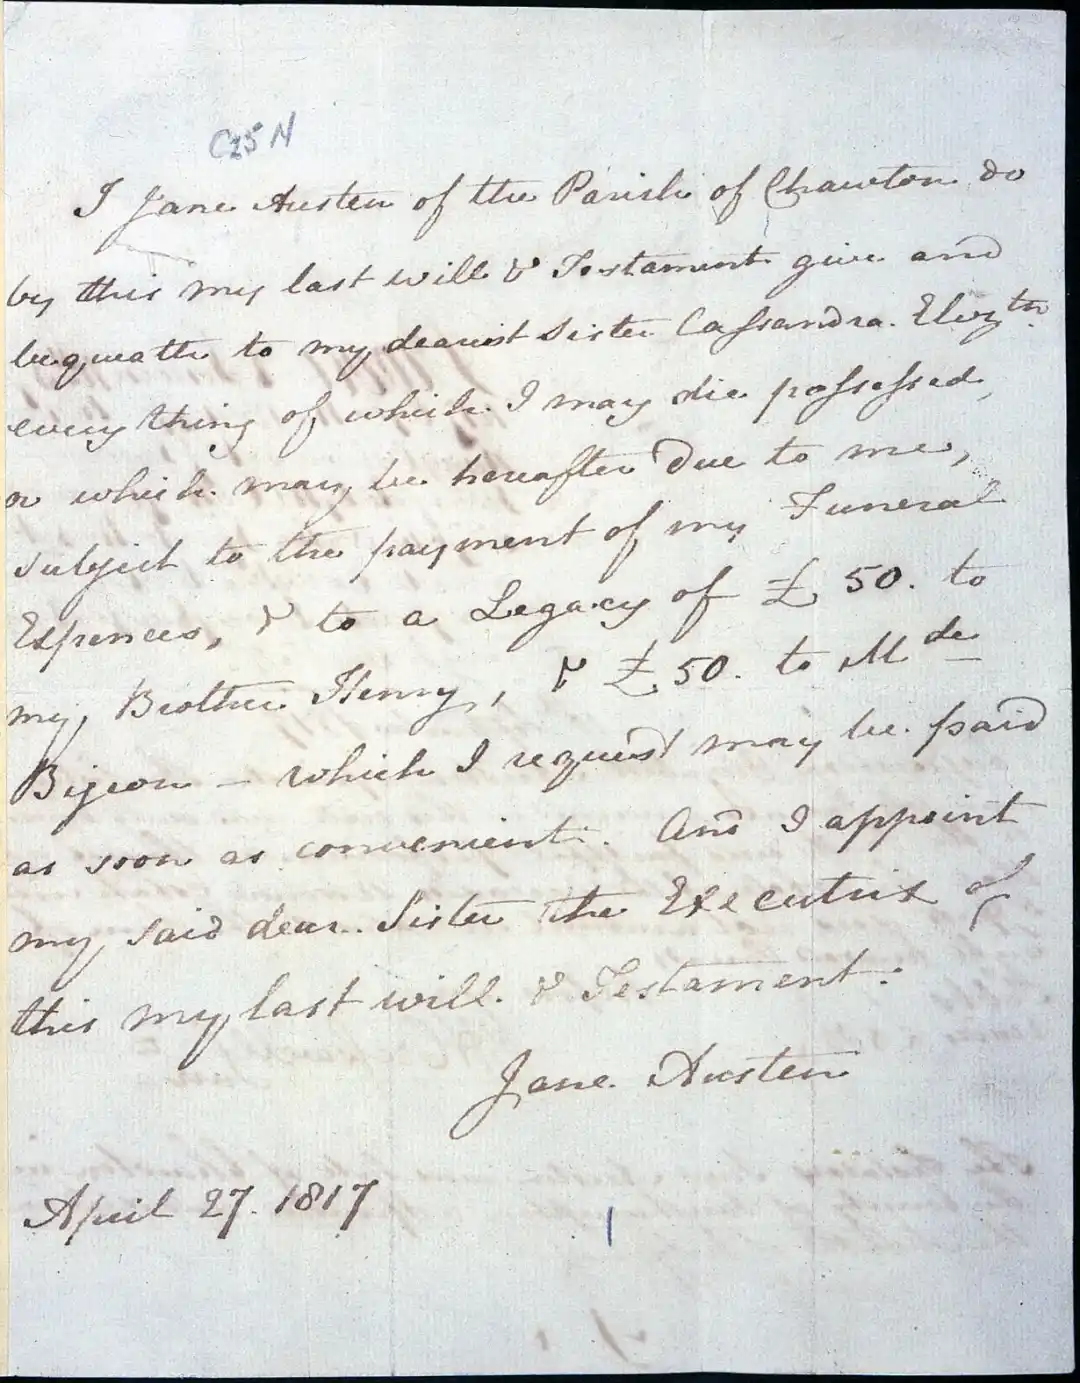 C25 N
I Jane Austen of the Parish of Chawton do
by this my last will & Testament give and
bequeath to my dearest Sister Cassandra Elizth
every thing of which I may die possessed,
or which may be hereafter due to me,
subject to the payment of my Funeral
Expences, & to a Legacy of £50. to
my Brother Henry, & £50. to Mde
Bigeon – which I request may be paid
as soon as convenient. And I appoint
my said dear Sister the Executrix of
this my last will. & Testament.
Jane Austen
April 27. 1817
1